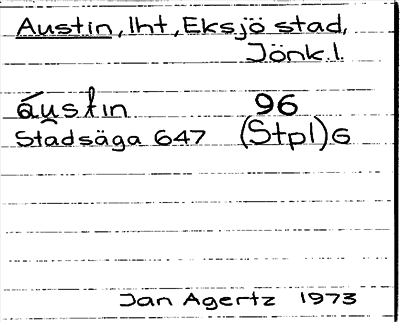 Austin, lht, Eksjö stad,
Jönk. l.
áu̯stin 96
Stadsäga 647 (Stpl) G
Jan Agertz 1973